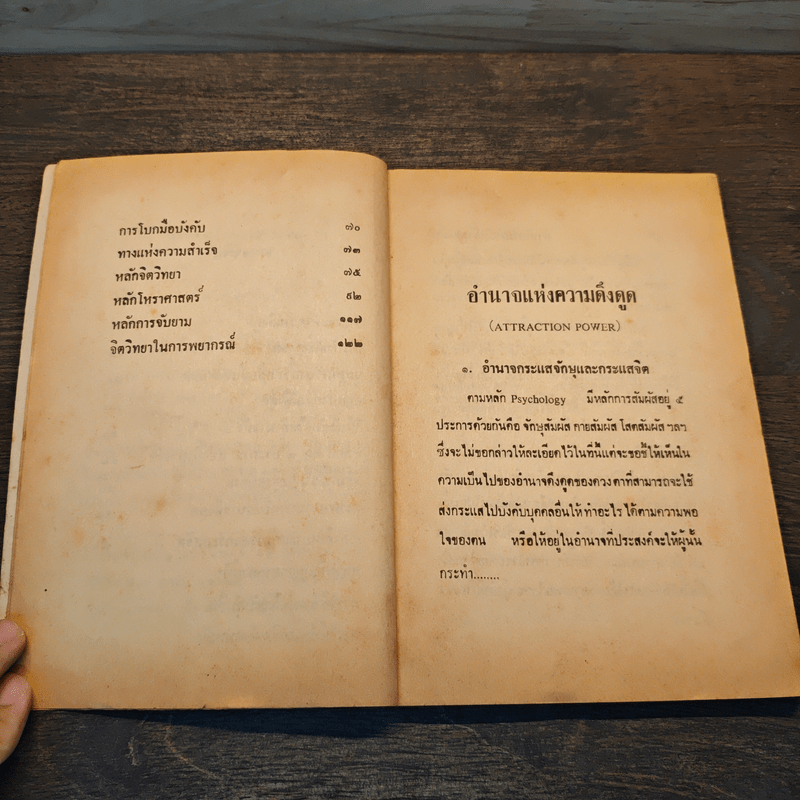 การโบกมือบังคับ ๗๐
ทางแห่งความสำเร็จ ๗๓
หลักจิตวิทยา ๗๕
หลักโหราศาสตร์ ๘๒
หลักการจับยาม ๑๑๗
จิตวิทยาในการพยากรณ์ ๑๒๒
อำนาจแห่งความดึงดูด
(ATTRACTION POWER)
๑. อำนาจกระแสจักษุและกระแสจิต
ตามหลัก Psychology มีหลักการสัมผัสอยู่ ๕
ประการด้วยกันคือ จักษุสัมผัส กายสัมผัส โสตสัมผัส ฯลฯ
ซึ่งจะไม่ขอกล่าวให้ละเอียดไว้ในที่นี้แต่จะขอชี้ให้เห็นใน
ความเป็นไปของอำนาจดึงดูดของดวงตาที่สามารถจะใช้
ส่งกระแสไปบังคับบุคคลอื่นให้ทำอะไรได้ตามความพอ
ใจของตน หรือให้อยู่ในอำนาจที่ประสงค์จะให้ผู้นั้น
กระทำ........